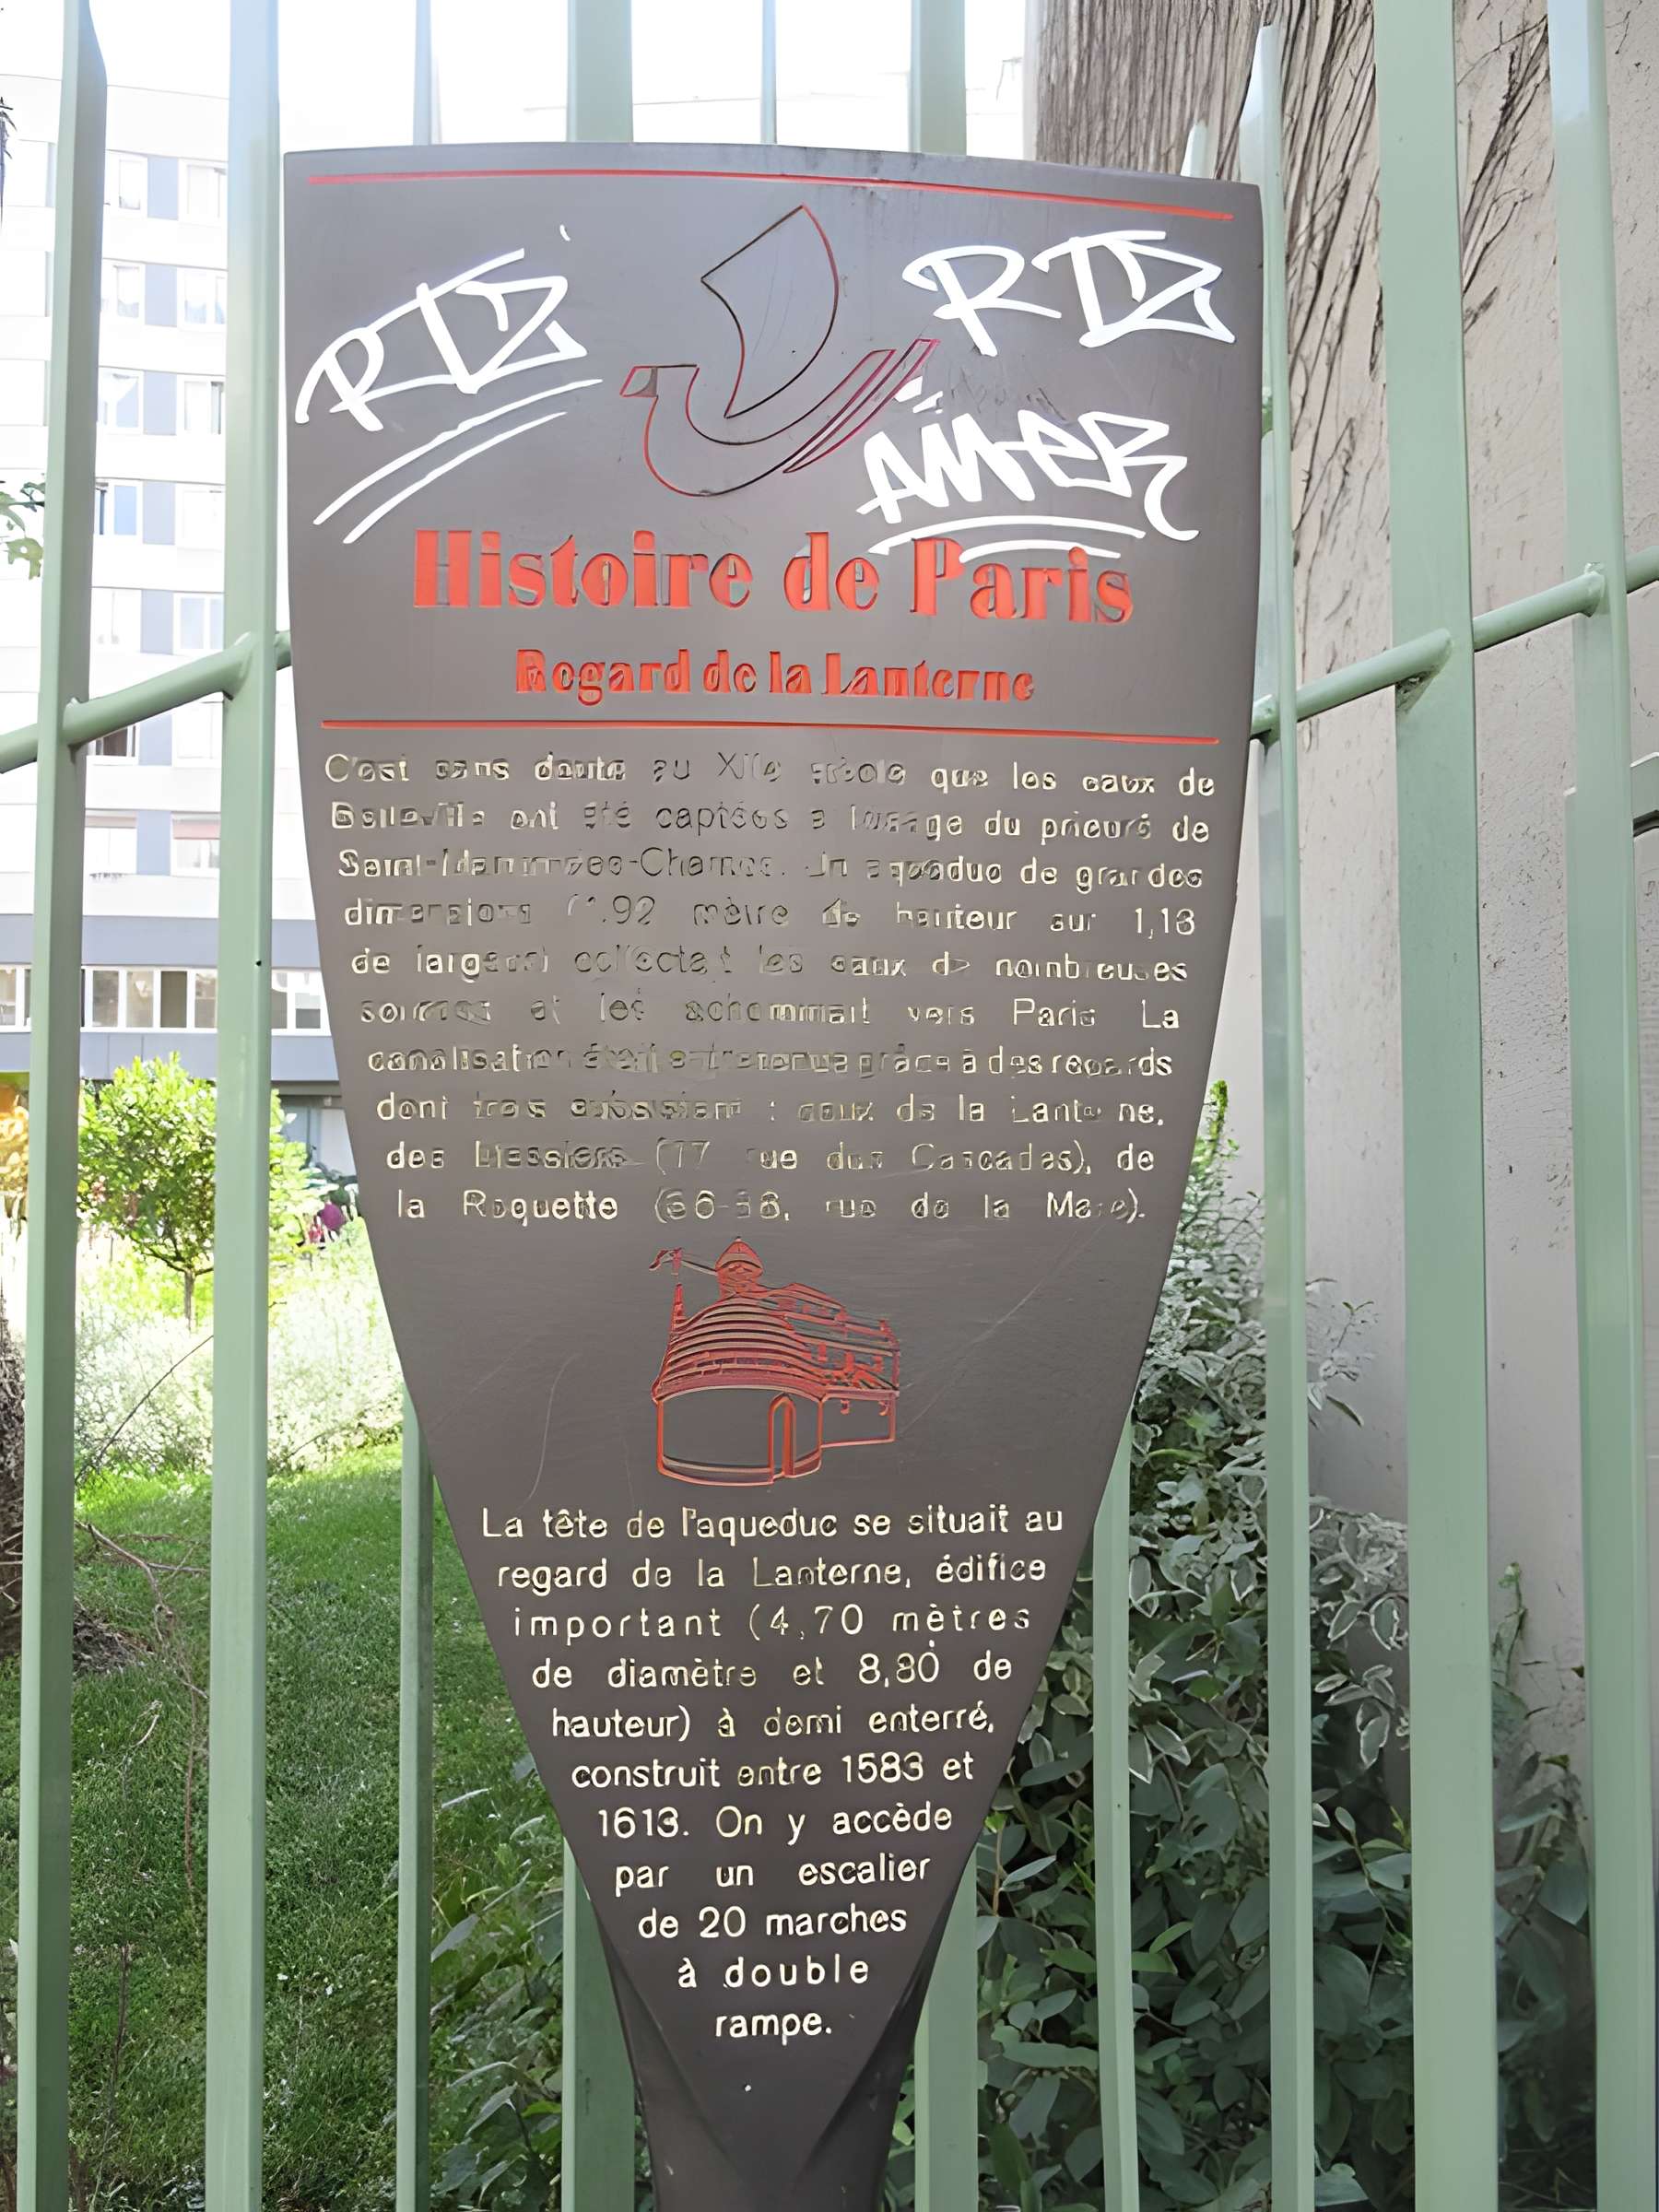 RTZ
RTZ
AMER
Histoire de Paris
Regard de la Lanterne
C'est sans doute au XIIe siècle que les eaux de
Belleville ont été captées à l'usage du prieuré de
Saint-Martin-des-Champs. Un aqueduc de grandes
dimensions (1,92 mètre de hauteur sur 1,13
de largeur) collectait les eaux de nombreuses
sources et les acheminait vers Paris La
canalisation était entretenue grâce à des regards
dont trois subsistent : ceux de la Lanterne,
des Messiers (17 rue des Cascades), de
la Roquette ( rue de la Mare).
La tête de l'aqueduc se situait au
regard de la Lanterne, édifice
important (4,70 mètres
de diamètre et 8,80 de
hauteur) à demi enterré,
construit entre 1583 et
1613. On y accède
par un escalier
de 20 marches
à double
rampe.